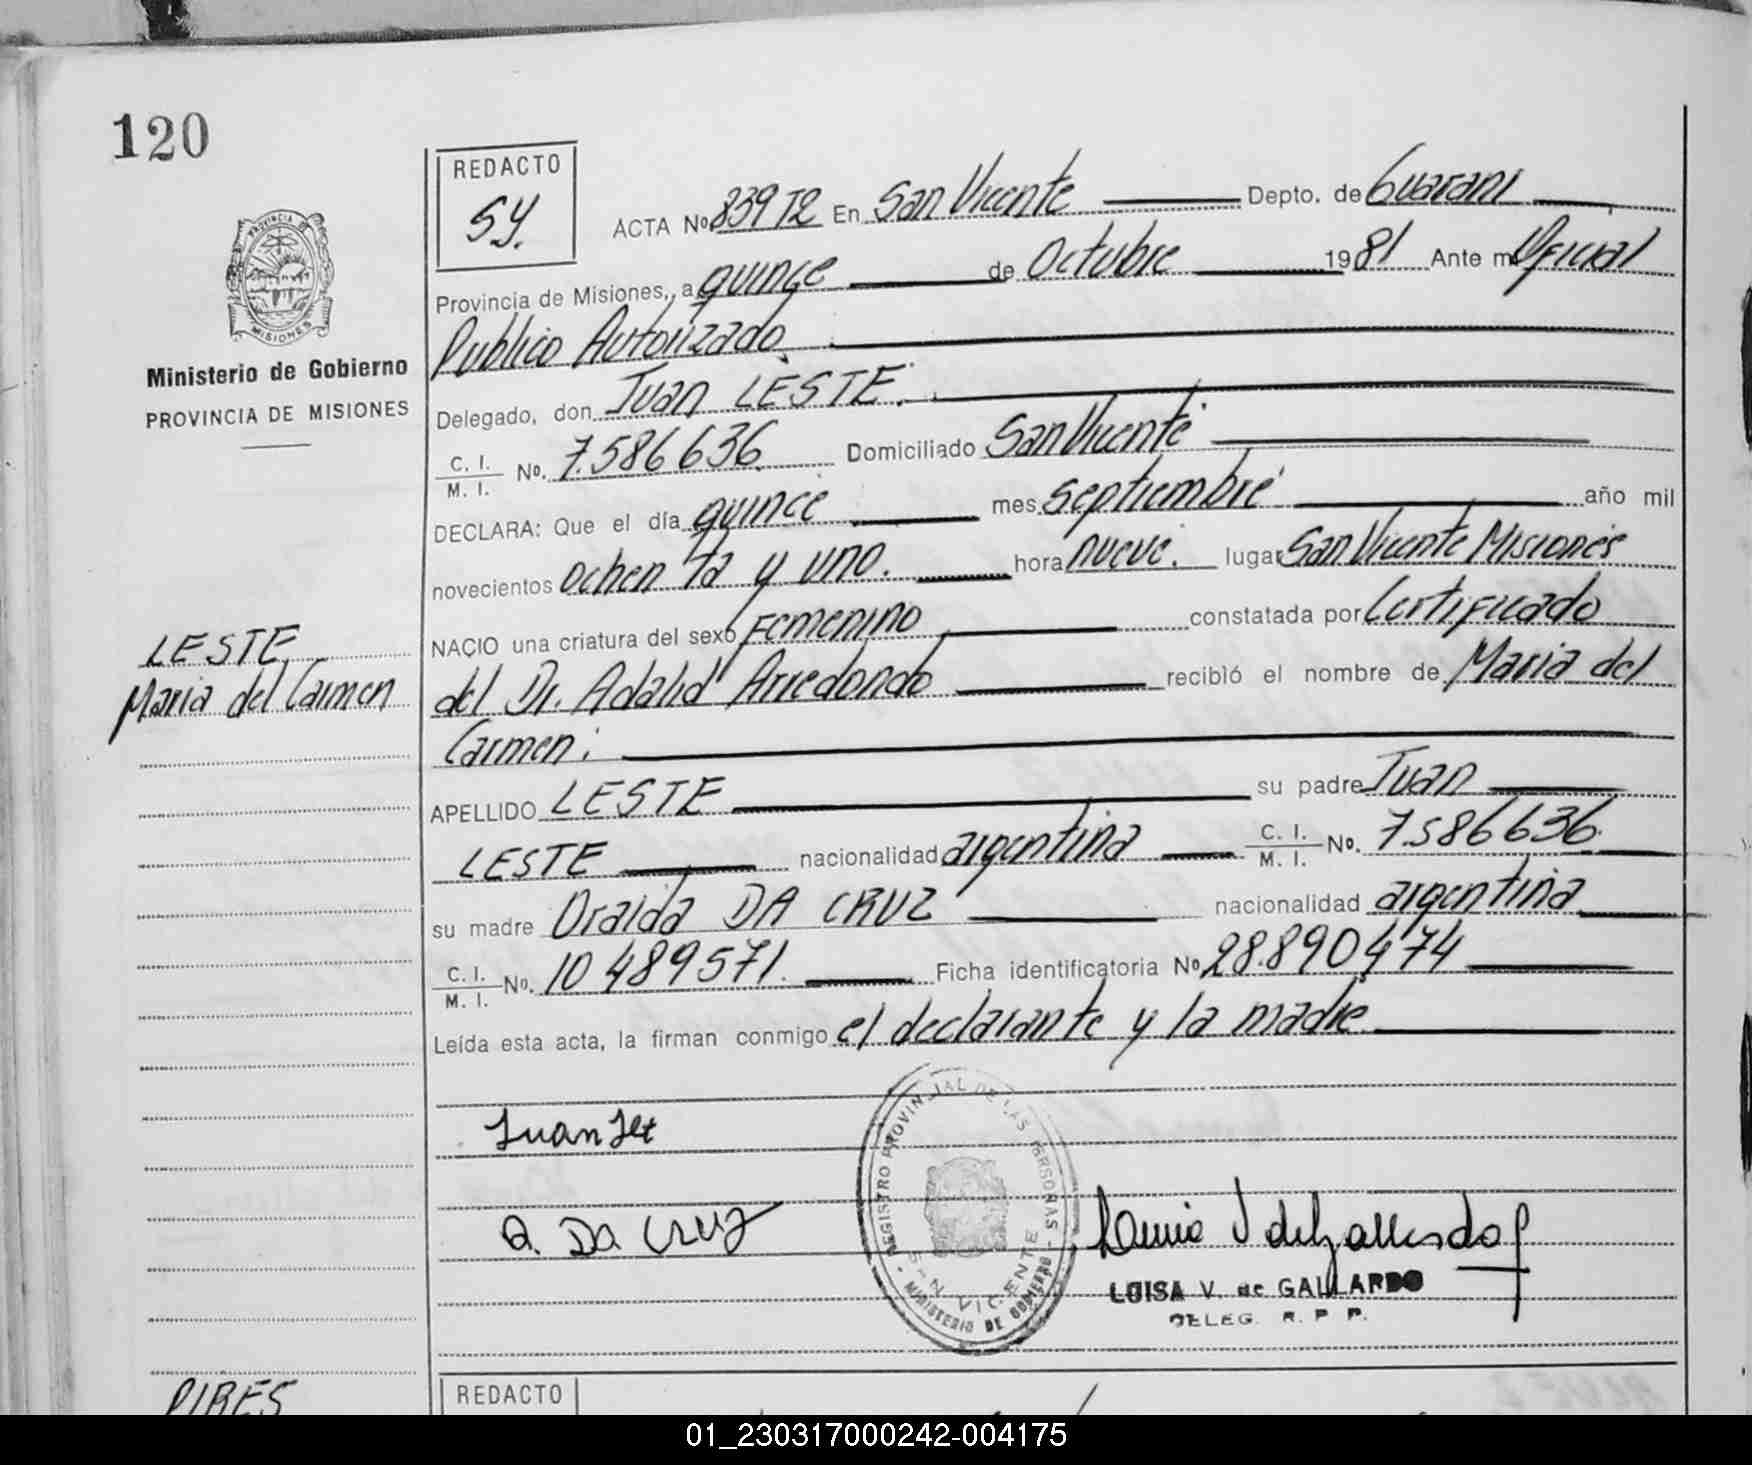 120
REDACTO
SY.
ACTA No. 839 T2 En San Vicente Depto. de Guarani
Provincia de Misiones, a quince de Octubre 1981 Ante mi Oficial
Publico Autorizado
PROVINCIA DE
MISIONES
Ministerio de Gobierno
PROVINCIA DE MISIONES
Delegado, don Juan LESTE.
C. I.
M. I. No. 7.586636 Domiciliado San Vicente
DECLARA: Que el día quince mes septiembre año mil
novecientos ochenta y uno. hora nueve. lugar San Vicente Misiones
NACIO una criatura del sexo Femenino constatada por Certificado
LESTE
Maria del Carmen
del Dr. Adalid Arredondo recibió el nombre de Maria del
Carmen.
APELLIDO LESTE su padre Juan
LESTE nacionalidad argentina C. I.
M. I. No. 7.586636.
su madre Oraida DA CRUZ nacionalidad argentina
C. I.
M. I. No. 10 489571. Ficha identificatoria No 28.890474
Leída esta acta, la firman conmigo el declarante y la madre
Juan
O. DA CRUZ
REGISTRO PROVINCIAL DE LAS PERSONAS
SAN VICENTE
MINISTERIO DE GOBIERNO
LUISA V. de GALLARDO
DELEG. R. P. P.
PIRES
REDACTO
01_230317000242-004175